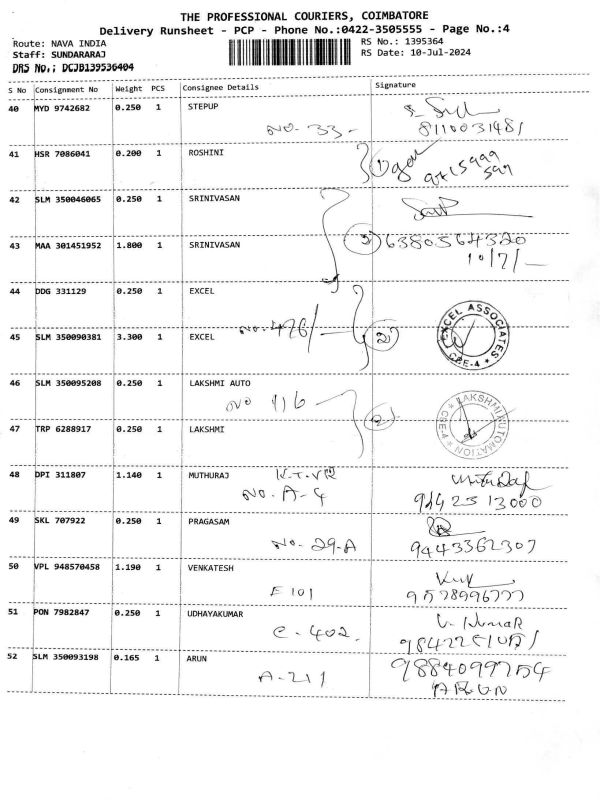 THE PROFESSIONAL COURIERS, COIMBATORE
Delivery Runsheet - PCP - Phone No.:0422-3505555 - Page No.:4
Route: NAVA INDIA
RS No.: 1395364
Staff: SUNDARARAJ
RS Date: 10-Jul-2024
DRS No.; DCJB139536404
S No Consignment No Weight PCS Consignee Details Signature
40 MYD 9742682 0.250 1 STEPUP
NO. 33-
8110031481
41 HSR 7086041 0.200 1 ROSHINI
42 SLM 350046065 0.250 1 SRINIVASAN
43 MAA 301451952 1.800 1 SRINIVASAN
6380564320
10/7/-
44 DDG 331129 0.250 1 EXCEL
NO. 476/-
2
45 SLM 350090381 3.300 1 EXCEL
EXCEL ASSOCIATES
CBE-4
46 SLM 350095208 0.250 1 LAKSHMI AUTO
NO 116
47 TRP 6288917 0.250 1 LAKSHMI
LAKSHMI AUTOMATION
CBE-4
48 DPI 311807 1.140 1 MUTHURAJ K.T.VR
NO. A-4
9442513000
49 SKL 707922 0.250 1 PRAGASAM
NO. 29-A
9443362307
50 VPL 948570458 1.190 1 VENKATESH
E 101
9578996777
51 PON 7982847 0.250 1 UDHAYAKUMAR
V. KUMAR
C-402.
52 SLM 350093198 0.165 1 ARUN
9884099754
A-211
ARUN